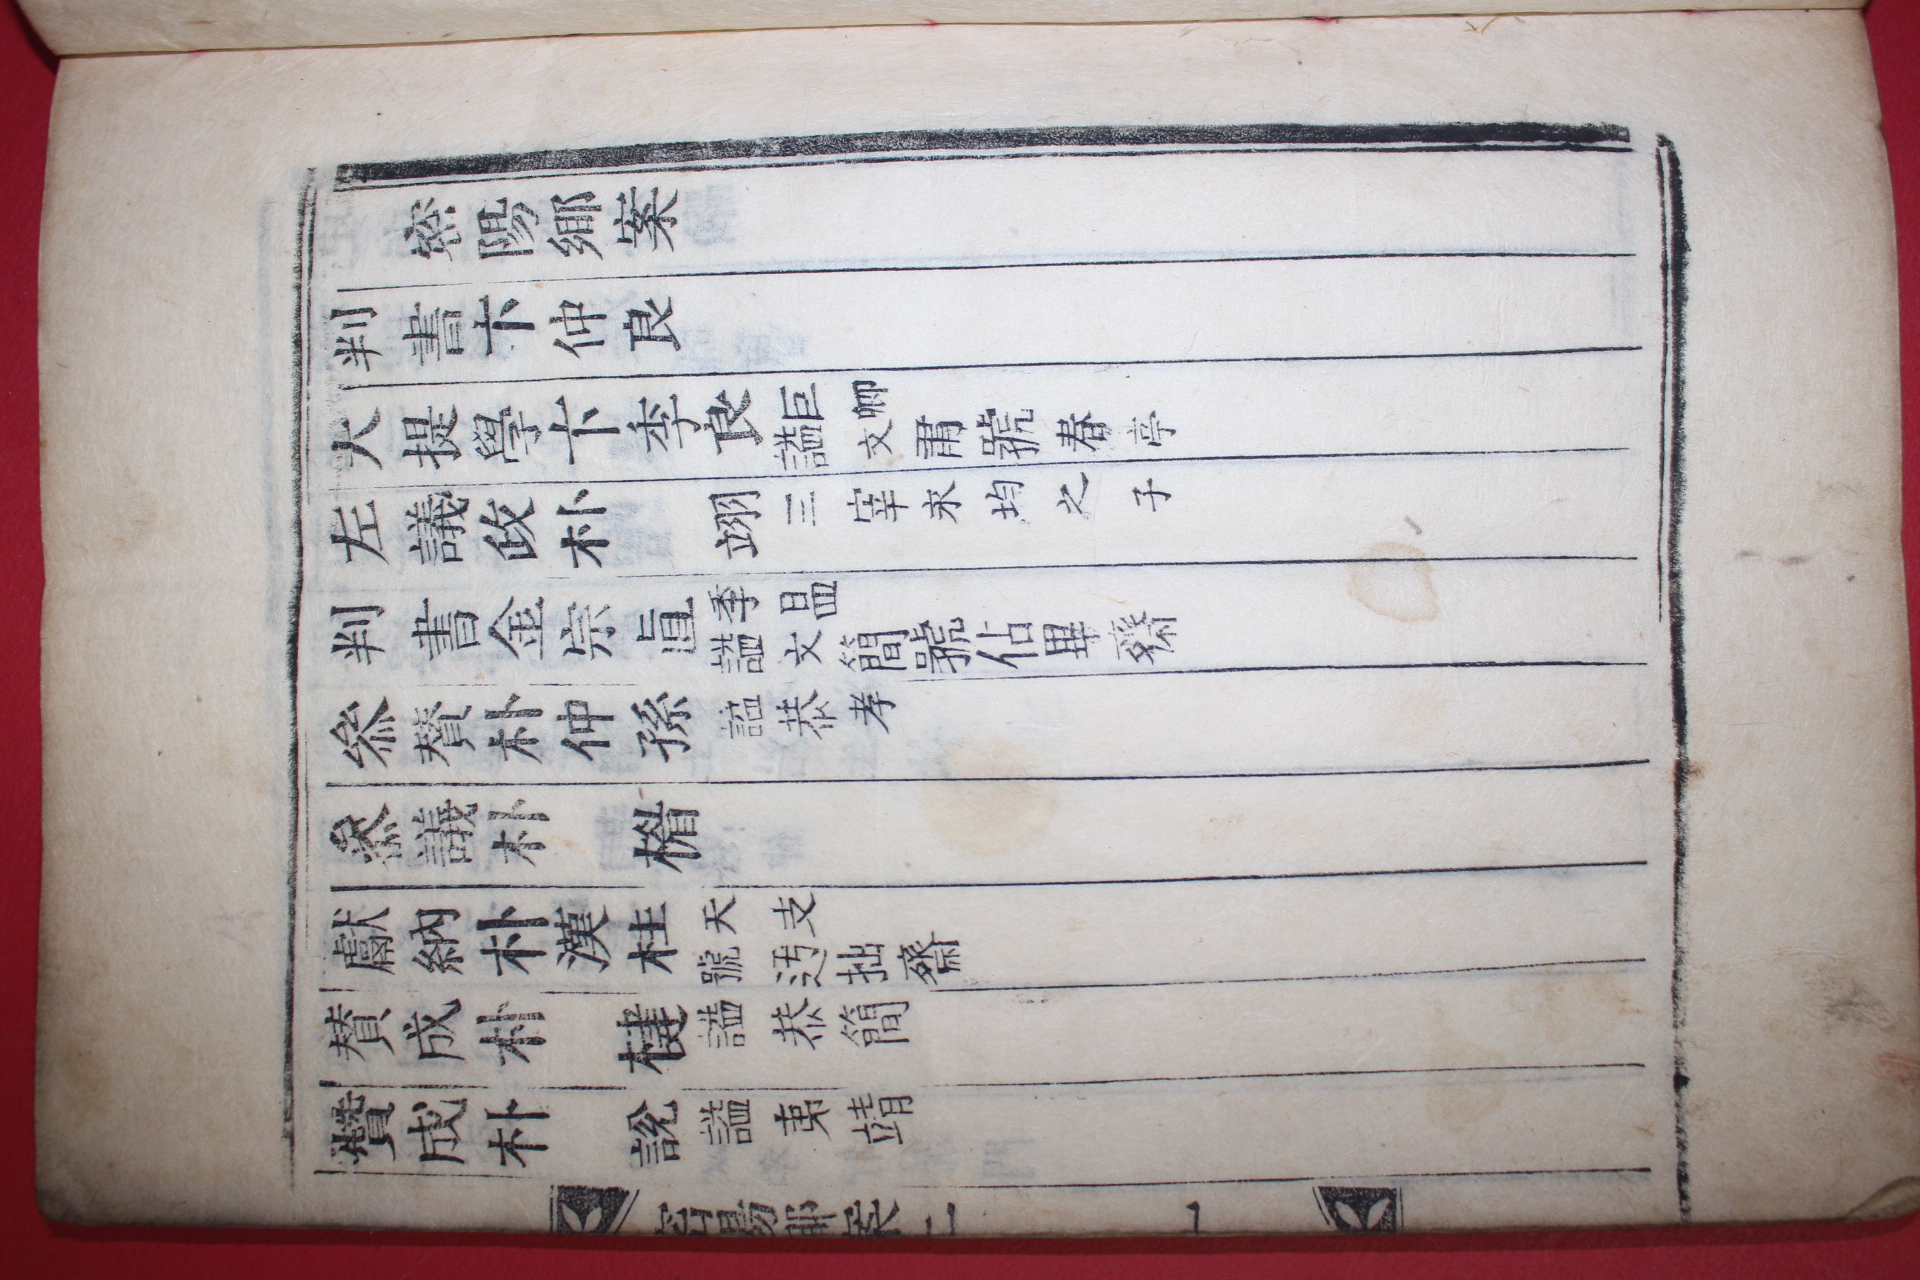 密陽鄉案
判書卞仲良
大提學卞季良 巨卿 謚文肅號春亭
左議政朴 翊 三宰永均之子
判書金宗直 季昷 謚文簡號佔畢齋
叅贊朴仲孫 謚恭孝
叅議朴 楷
獻納朴漢柱 天支 號迃拙齋
賛成朴 楗 謚恭簡
贊成朴 說 謚夷靖
密陽鄉案二 一